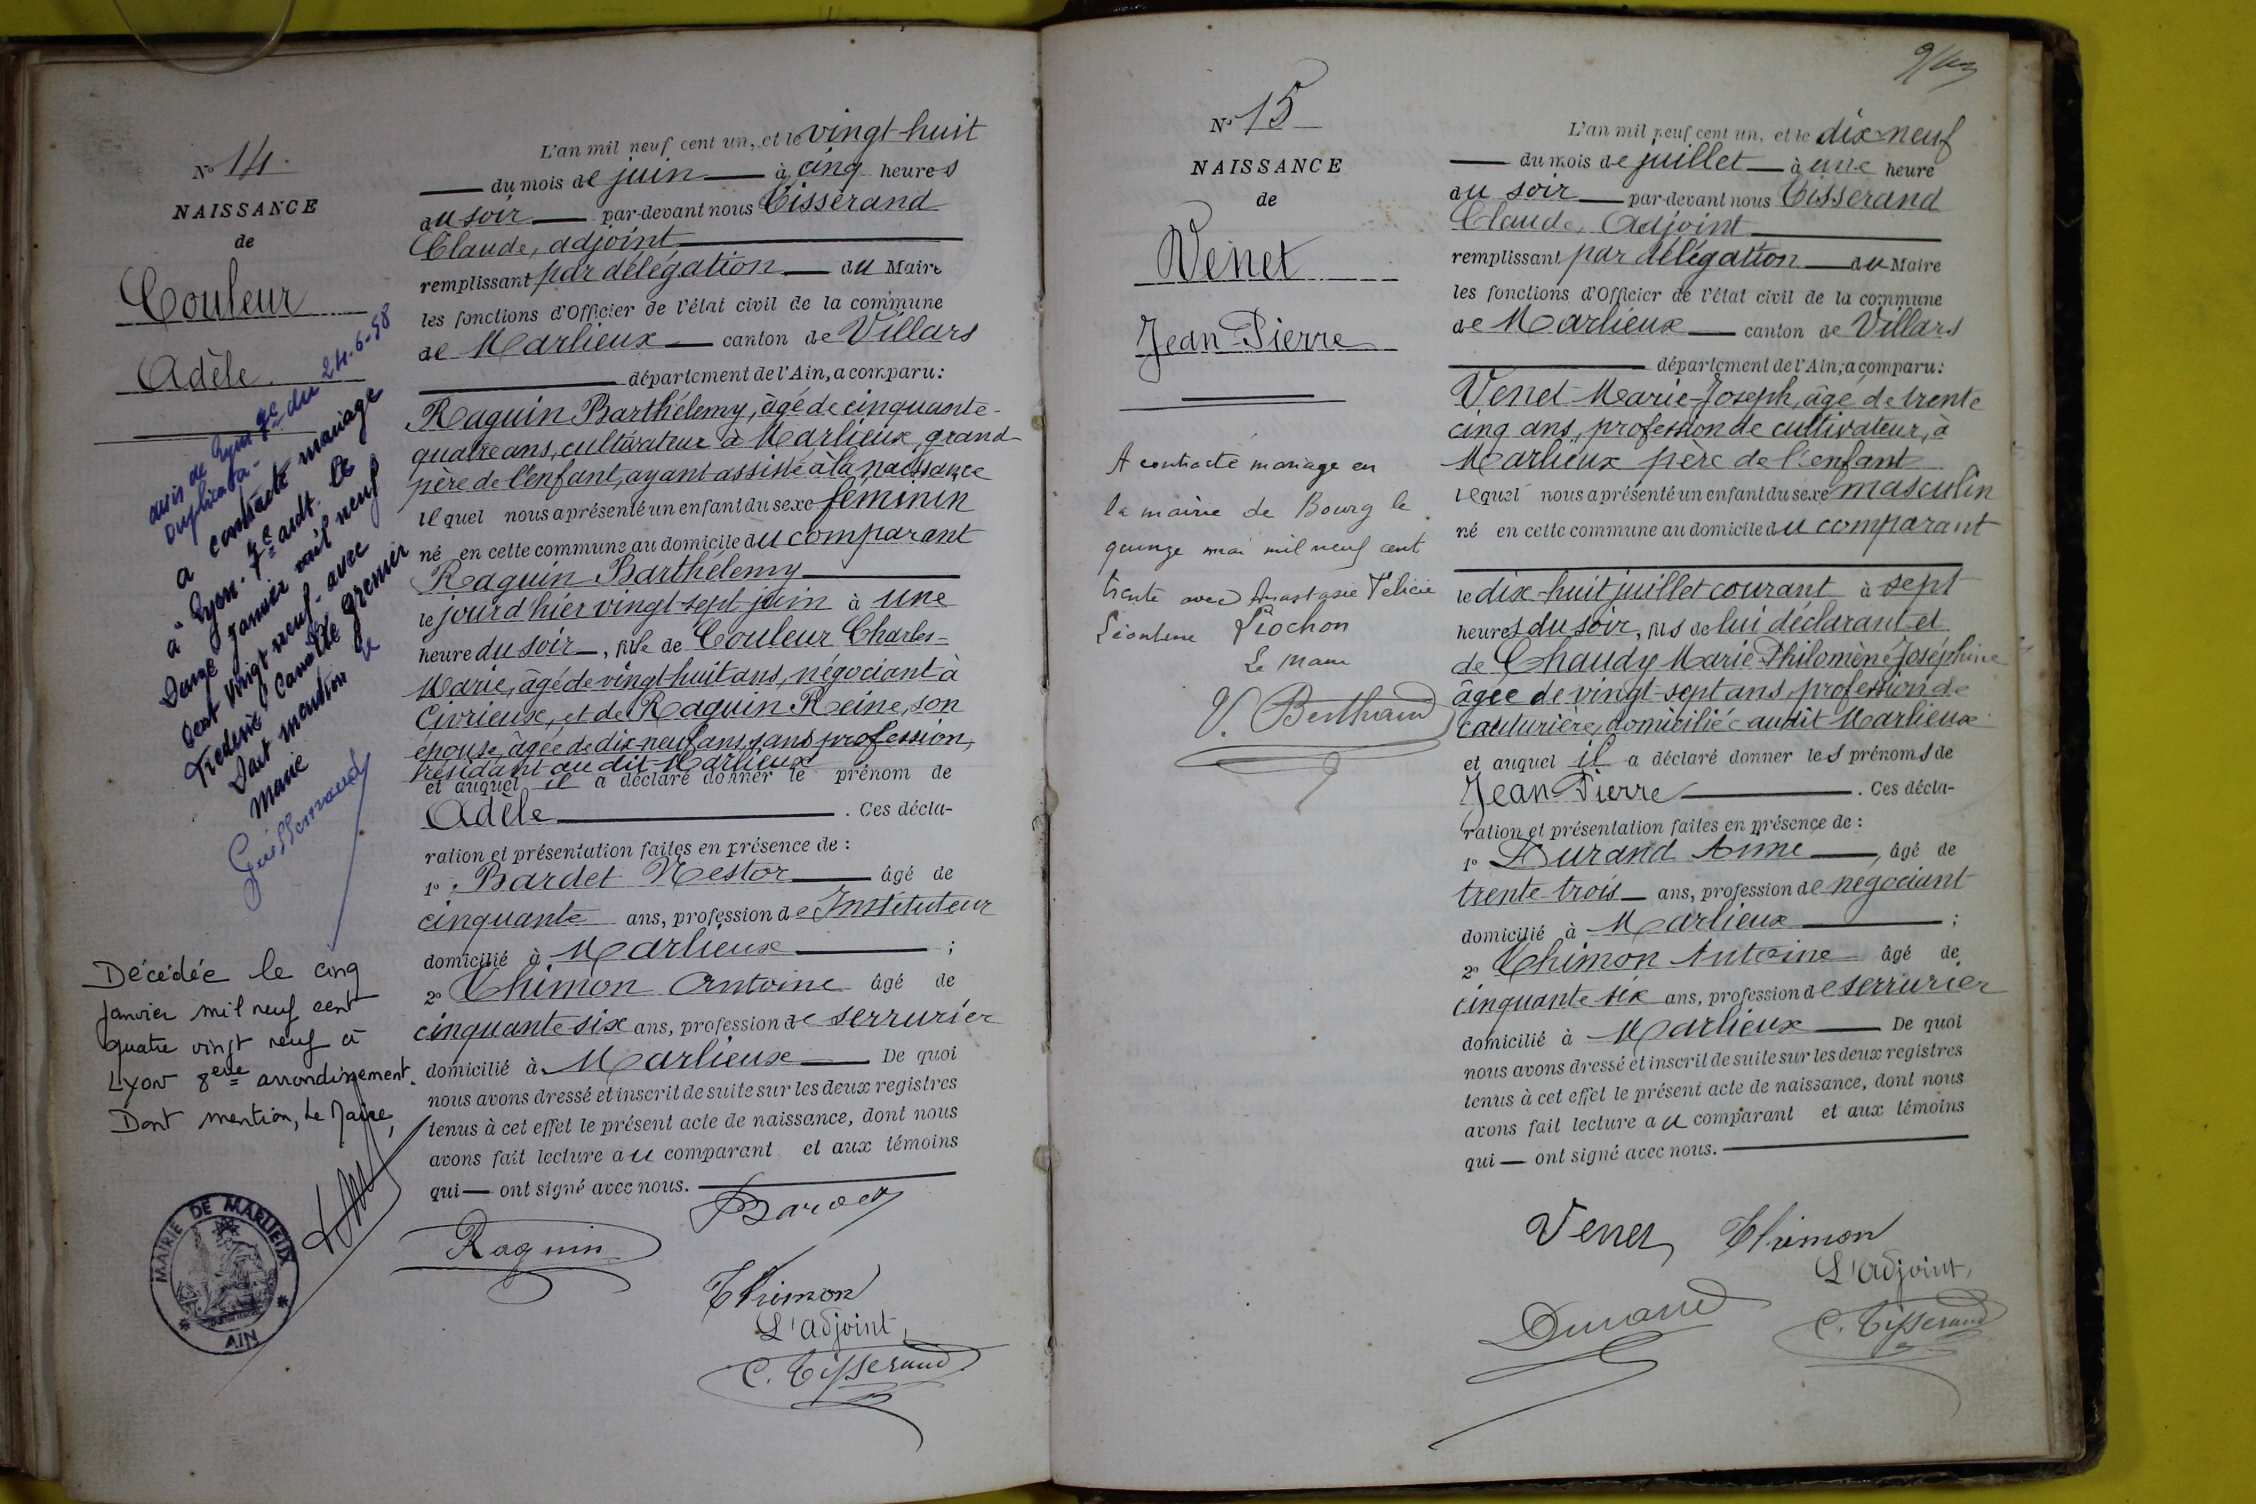 N° 14.
NAISSANCE
de
Couleur
Adèle
avis de Lyon 7e du 24-6-58
Duplicata -
a contracté mariage
à Lyon. 7e ardt. le
janvier mil neuf
cent vingt neuf - avec
Frédéric Camille Grenier
Dont mention le
Maire
Décédée le cinq
janvier mil neuf cent
quatre vingt neuf à
Lyon 8eme arrondissement.
Dont mention, Le Maire,
MAIRIE DE MARLIEUX
AIN
L'an mil neuf cent un, et le vingt-huit
du mois de juin à cinq heures
au soir par-devant nous Tisserand
Claude, adjoint
remplissant par délégation du Maire
les fonctions d'Officier de l'état civil de la commune
de Marlieux canton de Villars
département de l'Ain, a comparu:
Raguin Barthélemy, âgé de cinquante-
quatre ans, cultivateur à Marlieux, grand-
père de l'enfant, ayant assisté à la naissance
lequel nous a présenté un enfant du sexe féminin
né en cette commune au domicile du comparant
Raguin Barthélemy
le jour d'hier vingt-sept juin à une
heure du soir, fille de Couleur Charles-
Marie, âgé de vingt-huit ans, négociant à
Civrieux, et de Raguin Reine, son
épouse, âgée de dix-neuf ans, sans profession,
résidant au dit-Marlieux
et auquel il a déclaré donner le prénom de
Adèle. Ces décla-
ration et présentation faites en présence de :
1° Bardet Nestor âgé de
cinquante ans, profession de Instituteur
domicilié à Marlieux ;
2° Thimon Antoine âgé de
cinquante six ans, profession de serrurier
domicilié à Marlieux De quoi
nous avons dressé et inscrit de suite sur les deux registres
tenus à cet effet le présent acte de naissance, dont nous
avons fait lecture au comparant et aux témoins
qui — ont signé avec nous.
Bardet
Raguin
Thimon
L'adjoint,
C. Tisserand
N° 15
NAISSANCE
de
Venet
Jean-Pierre
A contracté mariage en
la mairie de Bourg le
quinze mai mil neuf cent
trente avec Anastasie Félicie
Léontine Piochon
Le Maire
V. Berthaud
L'an mil neuf cent un, et le dix-neuf
du mois de juillet à une heure
du soir par-devant nous Tisserand
Claude, Adjoint
remplissant par délégation du Maire
les fonctions d'Officier de l'état civil de la commune
de Marlieux canton de Villars
département de l'Ain, a comparu:
Venet Marie-Joseph, âgé de trente
cinq ans, profession de cultivateur, à
Marlieux père de l'enfant
lequel nous a présenté un enfant du sexe masculin
né en cette commune au domicile du comparant
le dix-huit juillet courant à sept
heures du soir, fils de lui déclarant et
de Chaudy Marie Philomène Joséphine
âgée de vingt-sept ans, profession de
couturière, domiciliée audit Marlieux
et auquel il a déclaré donner les prénoms de
Jean Pierre. Ces décla-
ration et présentation faites en présence de :
1° Durand Aimé, âgé de
trente-trois ans, profession de négociant
domicilié à Marlieux ;
2° Thimon Antoine âgé de
cinquante six ans, profession de serrurier
domicilié à Marlieux De quoi
nous avons dressé et inscrit de suite sur les deux registres
tenus à cet effet le présent acte de naissance, dont nous
avons fait lecture au comparant et aux témoins
qui — ont signé avec nous.
Venet Thimon
L'adjoint,
Durand
C. Tisserand